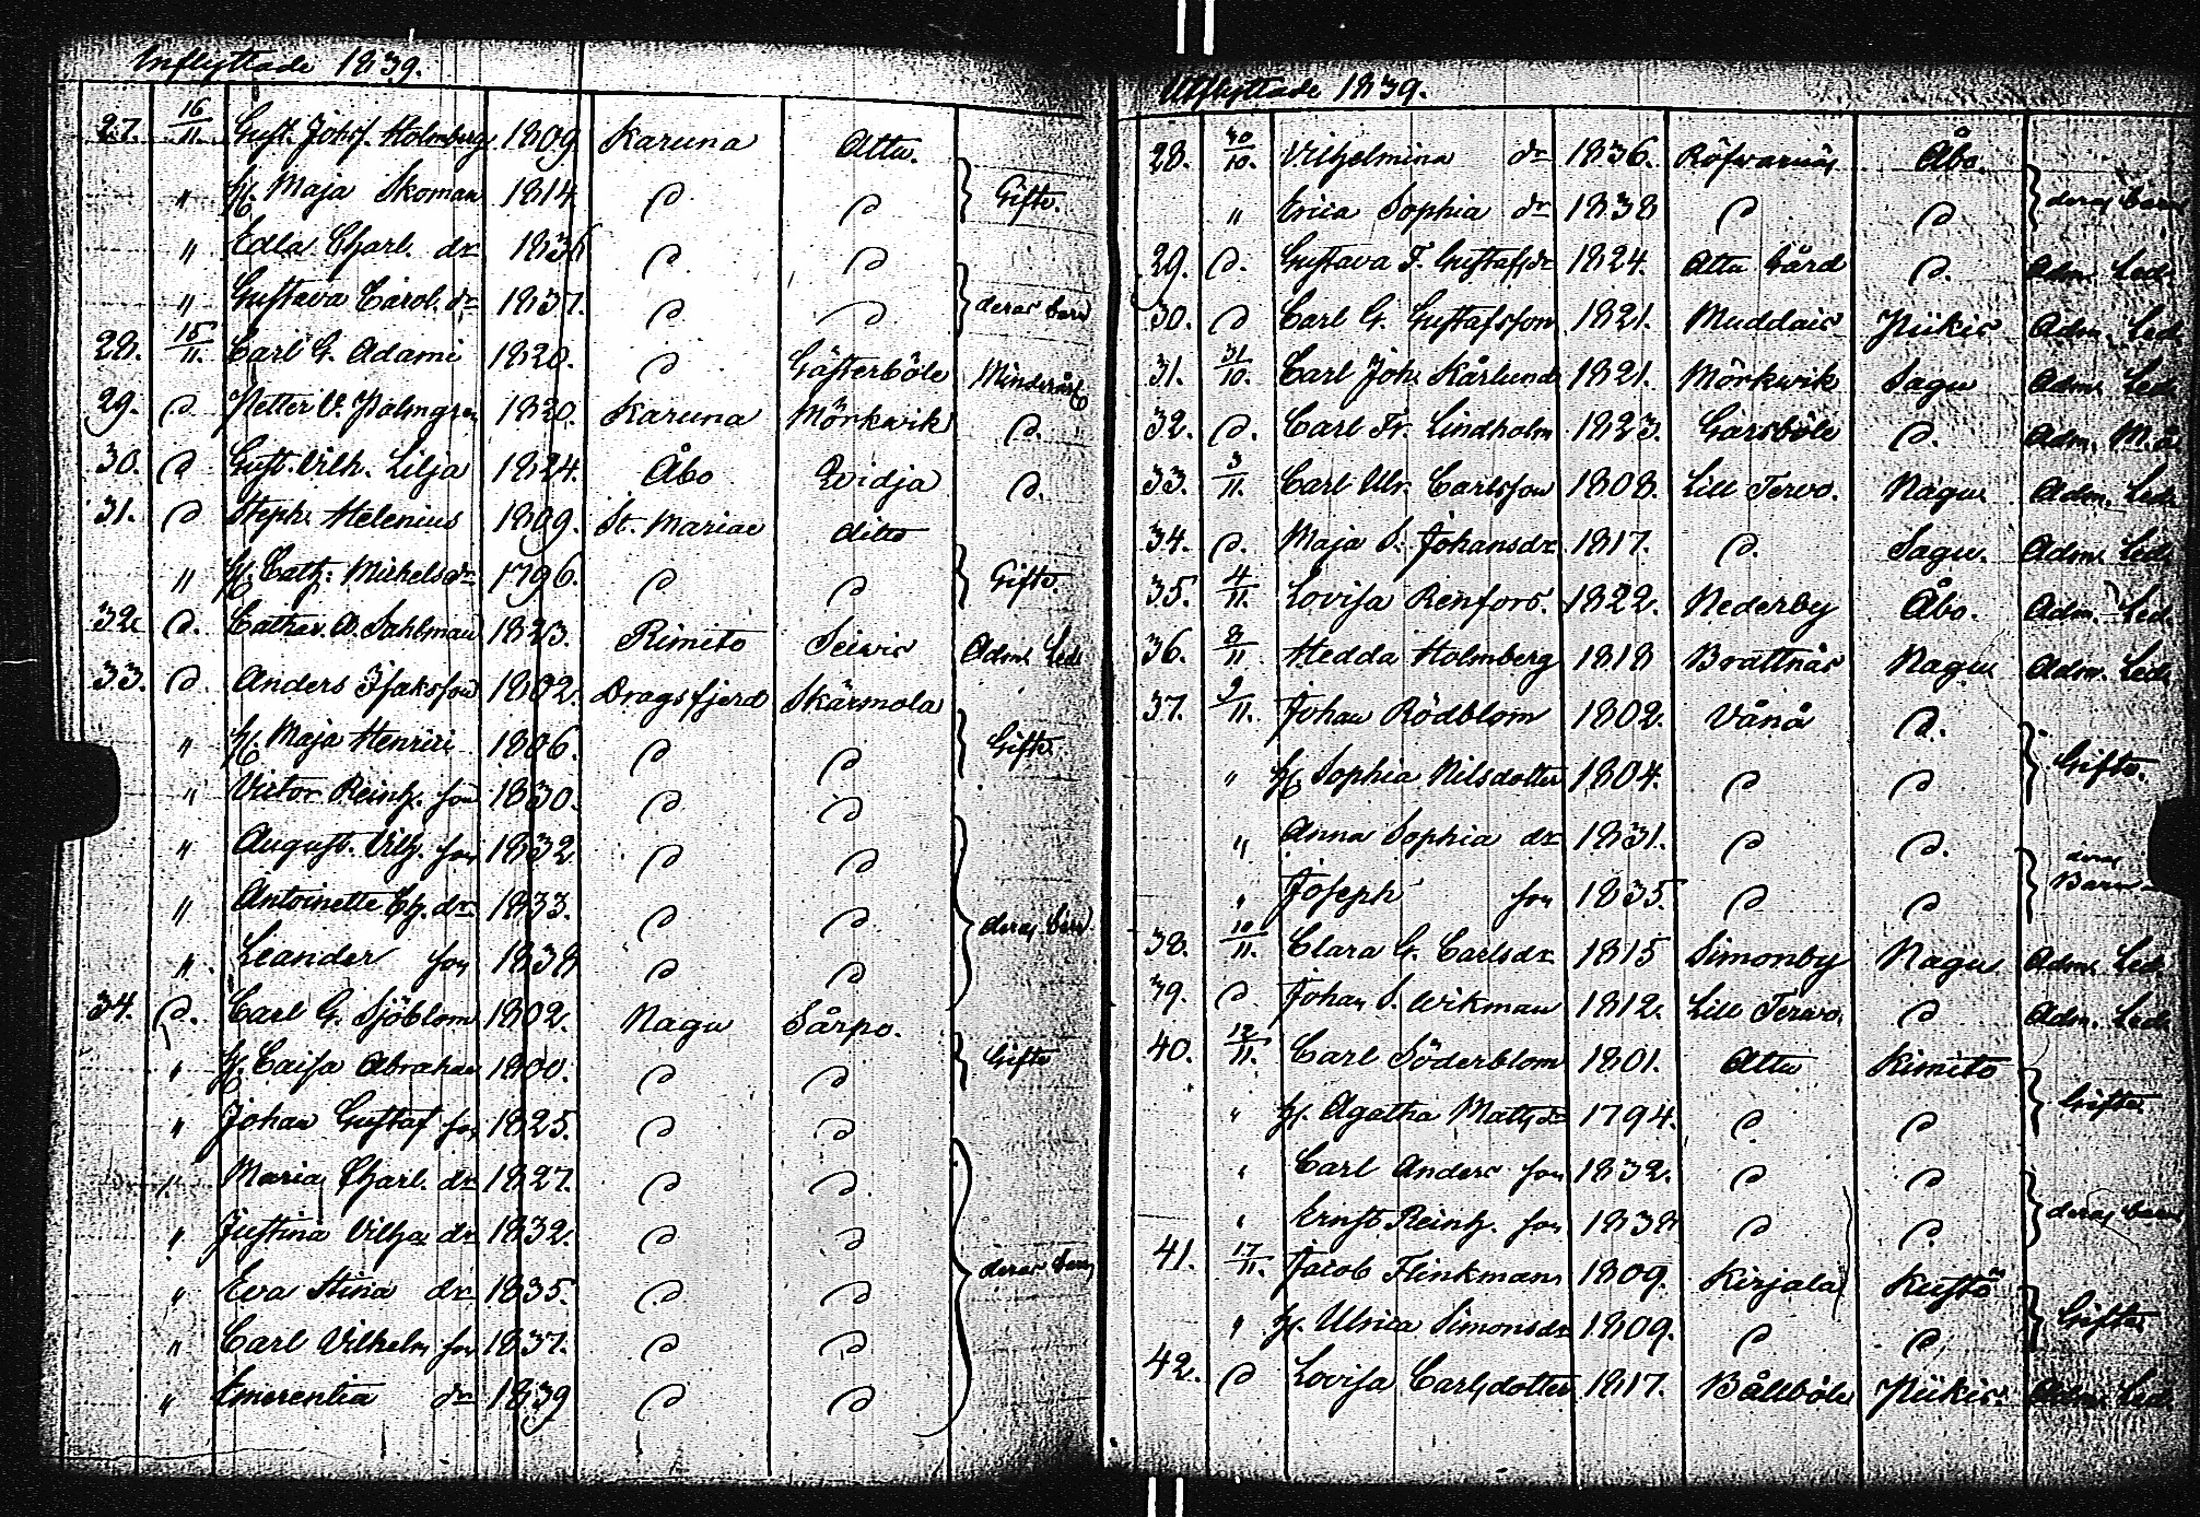 Inflyttade 1839.
27. 16/11. Gust. Johs. Holmberg 1809 Karuna Attu.
" H. Maja Skoman 1814 D D } Gifte.
" Edla Charl. dr 1836 D D
" Gustava Carol. dr 1837. D D } deras barn
28. 15/11. Carl G. Adami 1820. D Gästerböle Minderårig
29. D Petter V. Palmgren 1820. Karuna Mörkwik D.
30. D Gust. Vilh. Lilja 1824. Åbo Qvidja D.
31. D Steph. Helenius 1809. St. Mariae ditto
" H. Cath. Michelsdr 1796. D D } Gifte.
32. D. Cathar. A. Sahlman 1823. Rimito Seivis Adm. Led.
33. D. Anders Isaksson 1802. Dragsfjerd Skärmola
" H. Maja Henrici 1806. D D } Gifte.
" Victor Reinh. son 1830. D D
" August. Vilh. son 1832 D D
" Antoinette Ch. dr 1833. D D } deras barn
" Leander son 1838 D D
34. D. Carl G. Sjöblom 1802. Nagu Sårpo.
" H. Caisa Abraham 1800. D D } Gifte
" Johan Gustaf son 1825. D D
" Maria Charl. dr 1827. D D
" Justina Vilha dr 1832. D D
" Eva Stina dr 1835. D D } deras barn
" Carl Vilhelm son 1837. D D
" Emerentia dr 1839 D D
Utflyttade 1839.
28. 30/10. Vilhelmina dr 1836. Röfvarnäs Åbo.
" Erica Sophia dr 1838 D D } deras barn
29. D. Gustava F. Gustafsdr 1824. Attu Gård D. Adm. Led.
30. D Carl G. Gustafsson 1821. Muddais Piikis Adm. Led.
31. 31/10. Carl Joh. Kårlund 1821. Mörkwik Sagu Adm. Led.
32. D. Carl Fr. Lindholm 1823. Garsböle D. Adm. M.å.
33. 3/11. Carl Ulr. Carlsson 1808. Lill Tervo. Nagu Adm. Led.
34. D. Maja S. Johansdr 1817. D. Sagu. Adm. Led.
35. 4/11. Lovisa Renfors. 1822. Nederby Åbo. Adm. Led.
36. 8/11. Hedda Holmberg 1818 Brattnäs Nagu Adm. Led.
37. 9/11. Johan Rödblom 1802. Vånå D.
" H. Sophia Nilsdotter 1804. D D } Gifte.
" Anna Sophia dr 1831. D D.
" Joseph son 1835. D D } deras Barn
38. 10/11. Clara G. Carlsdr 1815 Simonby Nagu Adm. Led.
39. D. Johan S. Wikman 1812. Lill Tervo. D Adm. Led.
40. 12/11. Carl Söderblom 1801. Attu Kimito
" H. Agatha Matsdr 1794. D D } Gifte
" Carl Anders son 1832. D D
" Ernst Reinh. son 1838 D D. } deras barn
41. 17/11. Jacob Flinkman 1809. Kirjala Kustö
" H. Ulrica Simonsdr 1809. D D } Gifte
42. D Lovisa Carlsdotter 1817. Bållböle Piikis. Adm. Led.